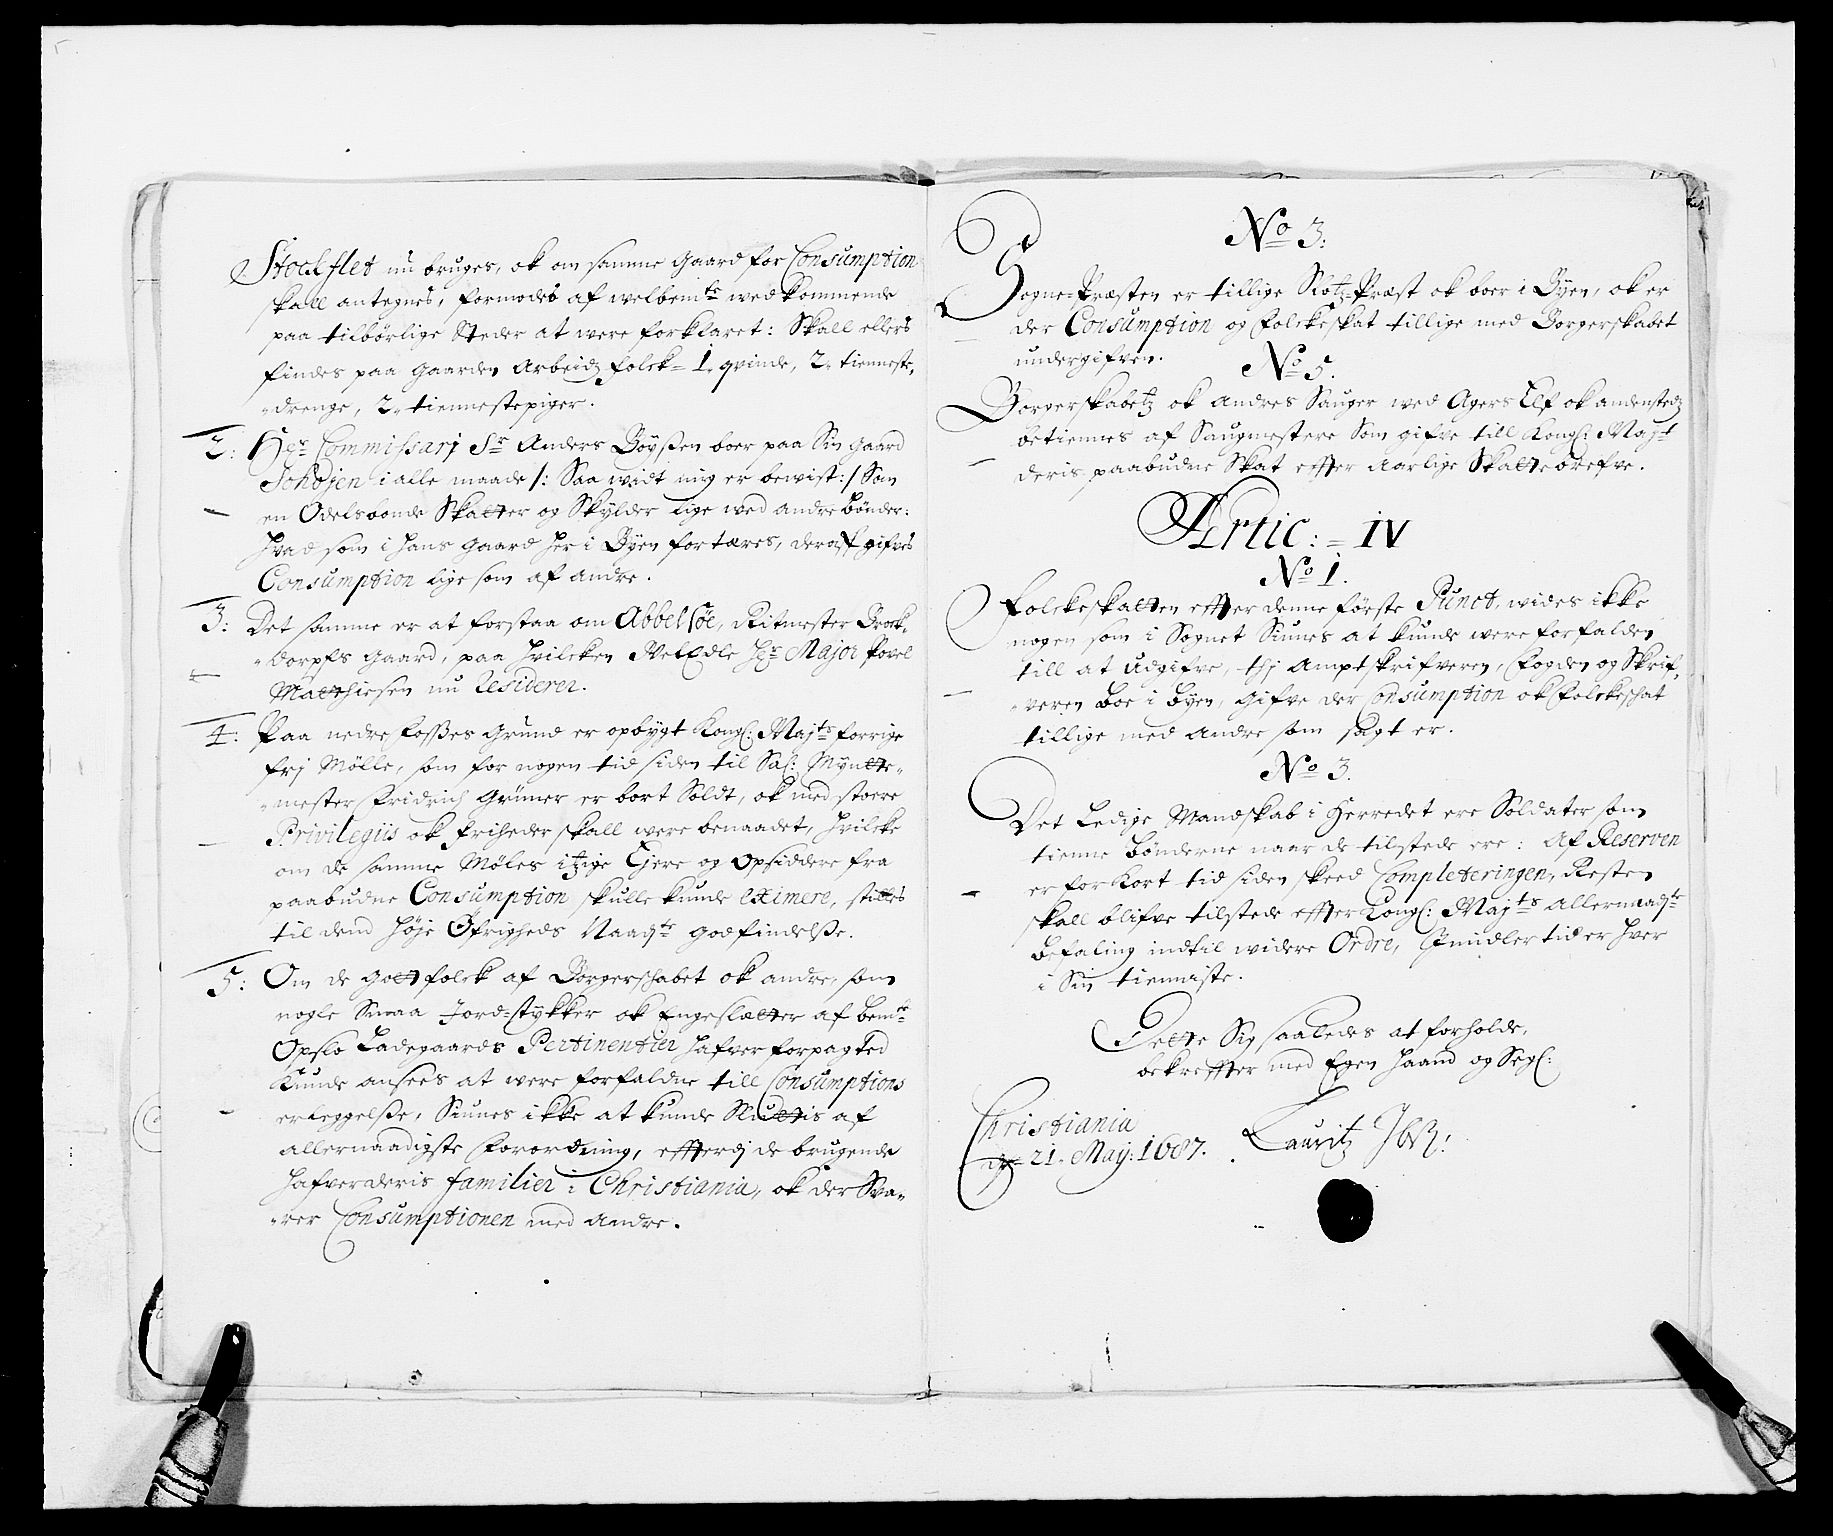 Stockflet nu bruges, ok om samme Gaard for Consumption
skall antegnes, formodes af welbemte wedkommende
paa tilbørlige Steder at were forklaret: Skall ellers
findes paa Gaarden Arbeidz folck = 1. qvinde, 2. tienneste,
drenge, 2. tiennestepiger.
2: Hr Commissarj Sr Anders Böyssen boer paa Sin Gaard
Schöjen i alle maade /: Saa widt mig er bewist :/ Som
en Odelsbonde Skatter og Skylder lige wed andre bönder:
Hvad som i hans Gaard her i Byen fortæres, deraff gifves
Consumption lige som af andre.
3: Det samme er at forstaa om Abbelsöe, Ritmester Brock-
dorpfs Gaard, paa hvilcken WelEdle Hr Major Povel
Matthiesen nu Residerer.
4: Paa nedre fosses Grund er opbygt Kongl: Majts forrige
frj Mölle, som for nogen tid siden til Sal: Myntte-
mester Fridrich Grüner er bort Soldt, ok med stoere
Privilegiis ok friheder skall were benaadet, hvilcke
om de samme Möles itzige Ejere og Opsiddere fra
paabudne Consumption skulle kunde eximere, stilles
til dend höje Öfrigheds Naadgte godfindelsse.
5: Om de Gott folck af Borgerschabet ok andre, som
nogle Smaa Jord-stykker ok Engesletter af bemte
Opslo Ladegaards Pertinentier hafver forpagted
Kunde ansees at were forfaldne till Consumptions
erleggelsse, Siunes ikke at kunde Sluttis af
allernaadigste Forordning, efftterdj de brugende
hafver deris familier i Christiania, ok der Sva-
rer Consumptionen med Andre.
No 3:
Sogne-Præsten er tillige Slotz-Præst ok boer i Byen, ok er
der Consumption og Folckeskat tillige med Borgerskabet
undergifven.
No 5.
Borgerskabetz ok andres Sauger wed Agers Elf ok andenstedz
betiennes af Saugmestere Som gifve till Kongl: Majt
deris paabudne Skat effter Aarlige Skattebrefve.
Artic: = IV
No 1.
Folckeskatten effter denne förste Punct, wides ikke
nogen som i Sognet Siunes at kunde were forfalden
till at Udgifve, thj Amptskrifveren, Fogden og Skrif-
veren boe i byen, gifve der Consumption ok Folckeschat
tillige med Andre som sagt er.
No 3.
Det Ledige Mandskab i Herredet ere Soldater som
tienne bönderne naar de tilstede ere: Af Reserven
er for Kort tid siden skeed Completeringen, Resten
skall blifve tilstede effter Kongl: Majts Allernaadgte
befaling indtil widere Ordre, Jmidlertid er hver
i Sin tienniste.
Dette Sig saaledes at forholde,
bekreffter med Egen haand og Segl:
Christiania
21. Maij: 1687. Lauritz Jbsz: